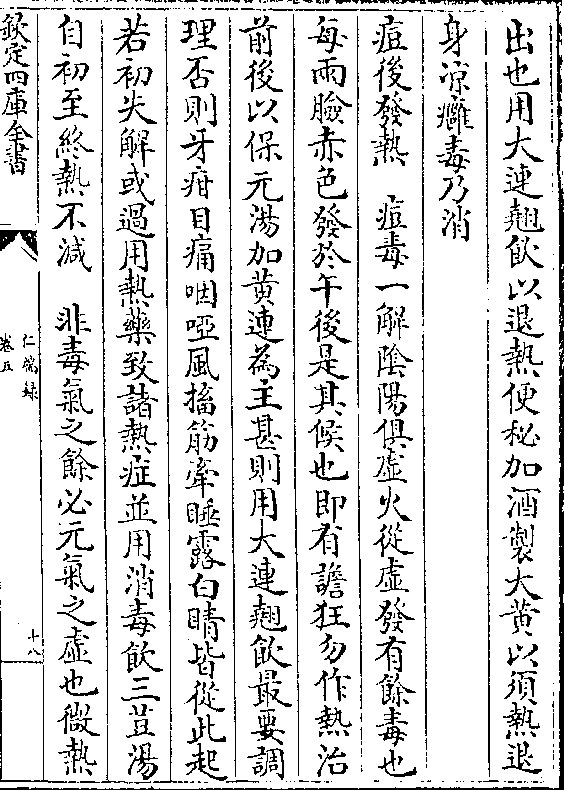 出也用大連翹飲以退熱便秘加酒製大黄以須熱退
身凉癰毒乃消
痘後發熱　痘毒一解陰陽俱虚火從虚發有餘毒也
每兩臉赤色發於午後是其候也即有譫狂勿作熱治
前後以保元湯加黄連為主甚則用大連翹飲最要調
理否則牙疳目痛咽啞風搐筋牽睡露白睛皆從此起
若初失解或過用熱藥致諸熱症並用消毒飲三荳湯
自初至終熱不減　非毒氣之餘必元氣之虚也微熱
欽定四庫全書
仁端録
卷五
十八